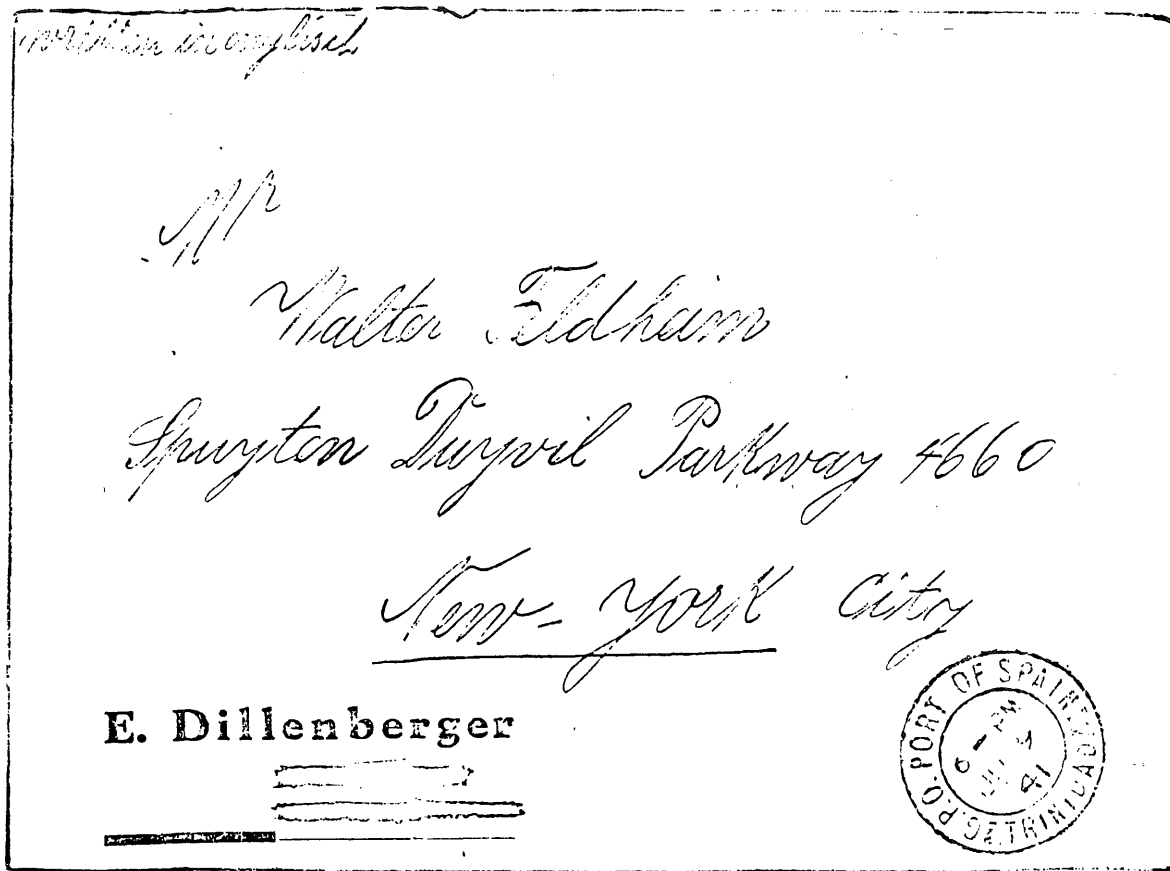 written in english
Mr
Walter Feldheim
Spuyton Duyvil Parkway 4660
New-York City
E. Dillenberger
G.P.O. PORT OF SPAIN TRINIDAD
PM
41